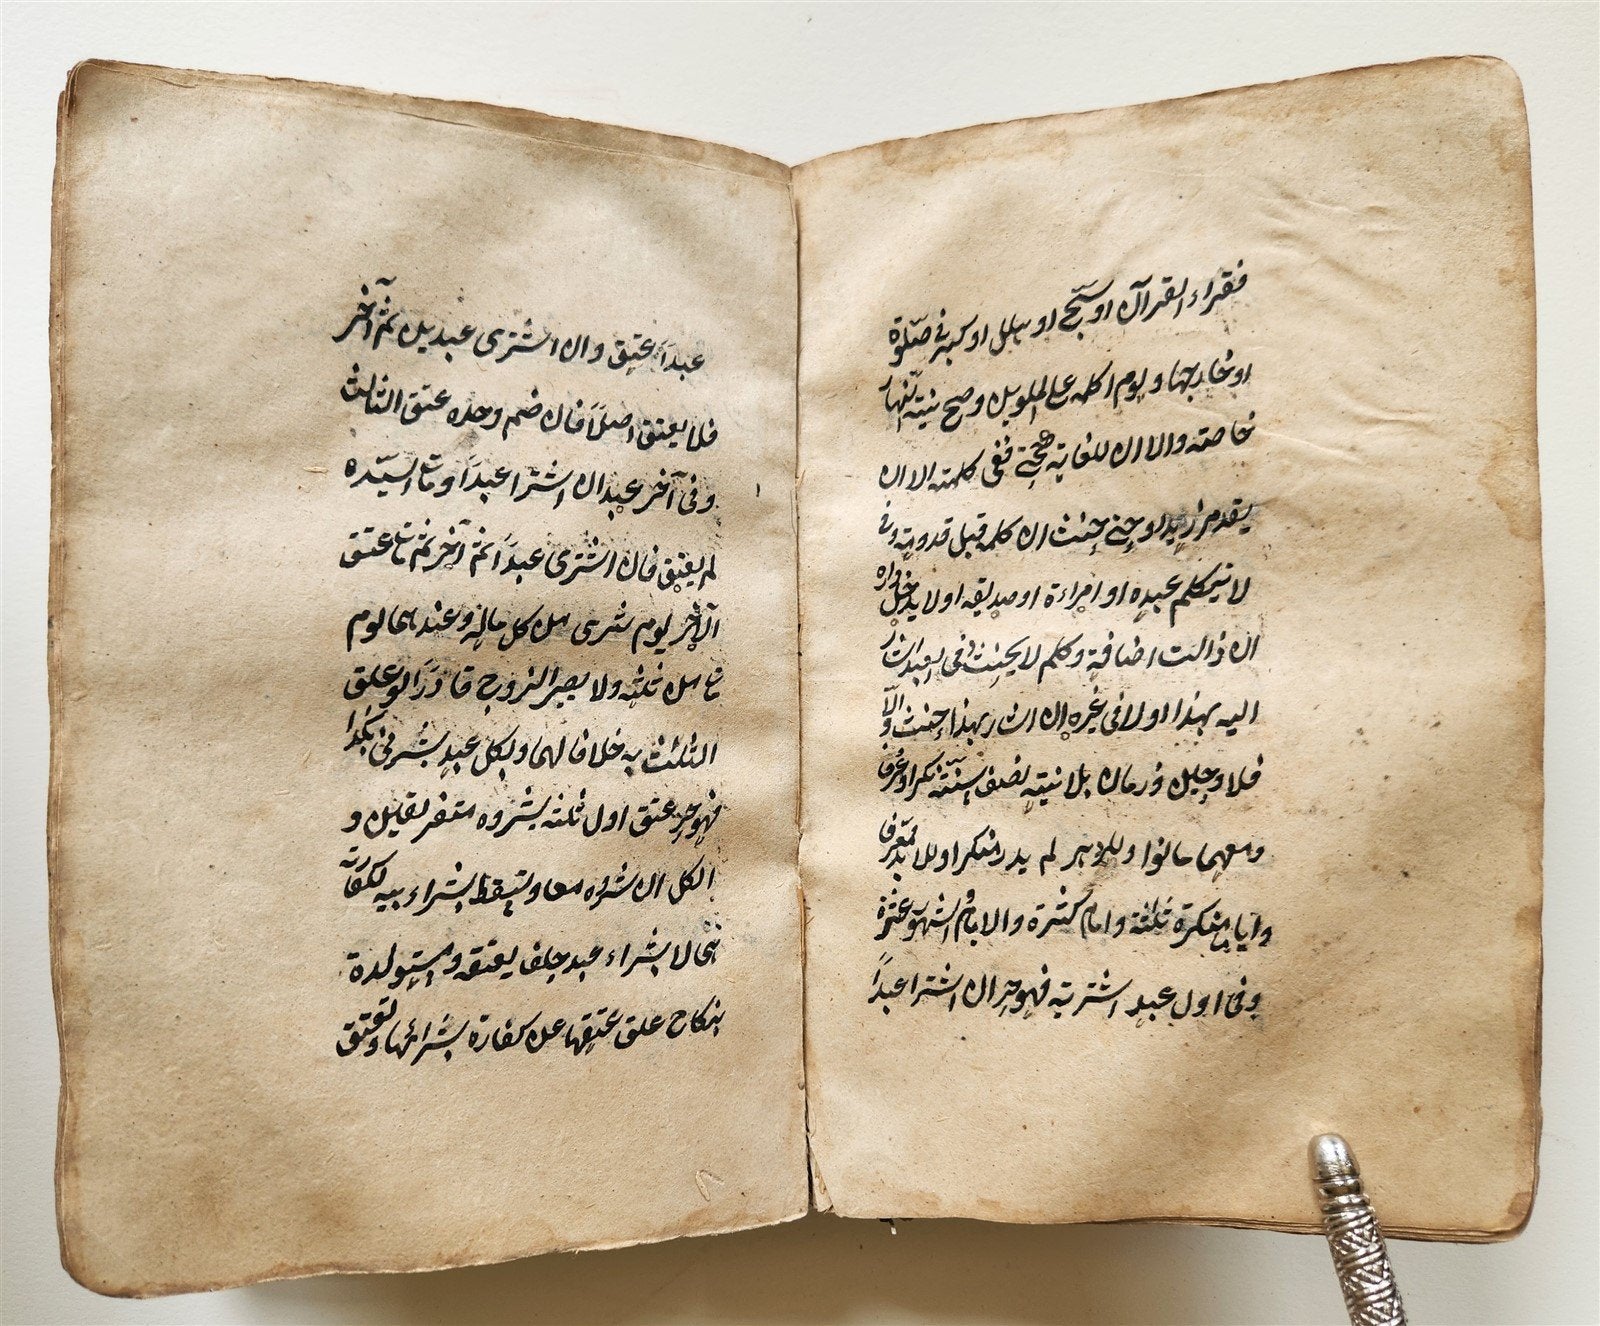 فقراء القرآن او سبح او هلل او كبر في صلوة
او خارجها و يوم اكلمه على الملوين وصح نيته النهار
خاصته والا ان للغاية كحتى ففي كلمته الا ان
يقدم زيد او حتى حنث ان كلمه قبل قدومه وفي
لا يكلم عبده او امراءة او صديقه او لا يدخل داره
ان زالت اضافة وكلم لا يحنث في العبد اشار
اليه بهذا اولا في غيره ان اشار بهذا حنث والا
فلا وحين وزمان بلا نية نصف سنة نكرا وعرف
ومعهما ما نوا وللدهر لم يدر منكرا وللابد معرفا
وايام منكرة ثلثة وايام كثيرة والايام الشهور عشرة
وفي اول عبد اشتريته فهو حر ان اشترا عبدا
عبدا عتق وان اشترى عبدين ثم آخر
فلا يعتق اصلا فان ضم وحده عتق الثالث
وفي آخر عبد ان اشترا عبدا ومات السيده
لم يعتق فان اشترى عبدا ثم آخر ثم مات عتق
الآخر يوم شرى من كل ماله وعندهما يوم
مات من ثلثه ولا يصير الزوج فارا لو علق
الثلث به خلافا لهما وبكل عبد بشرني بكذا
فهو حر عتق اول ثلثة بشروه متفرقين و
الكل ان بشروه معا وتسقط بشراء ابيه لكفارته
هي لا بشراء عبد حلف بعتقه ومستولدة
بنكاح علق عتقها عن كفارة بشرائها وتعتق